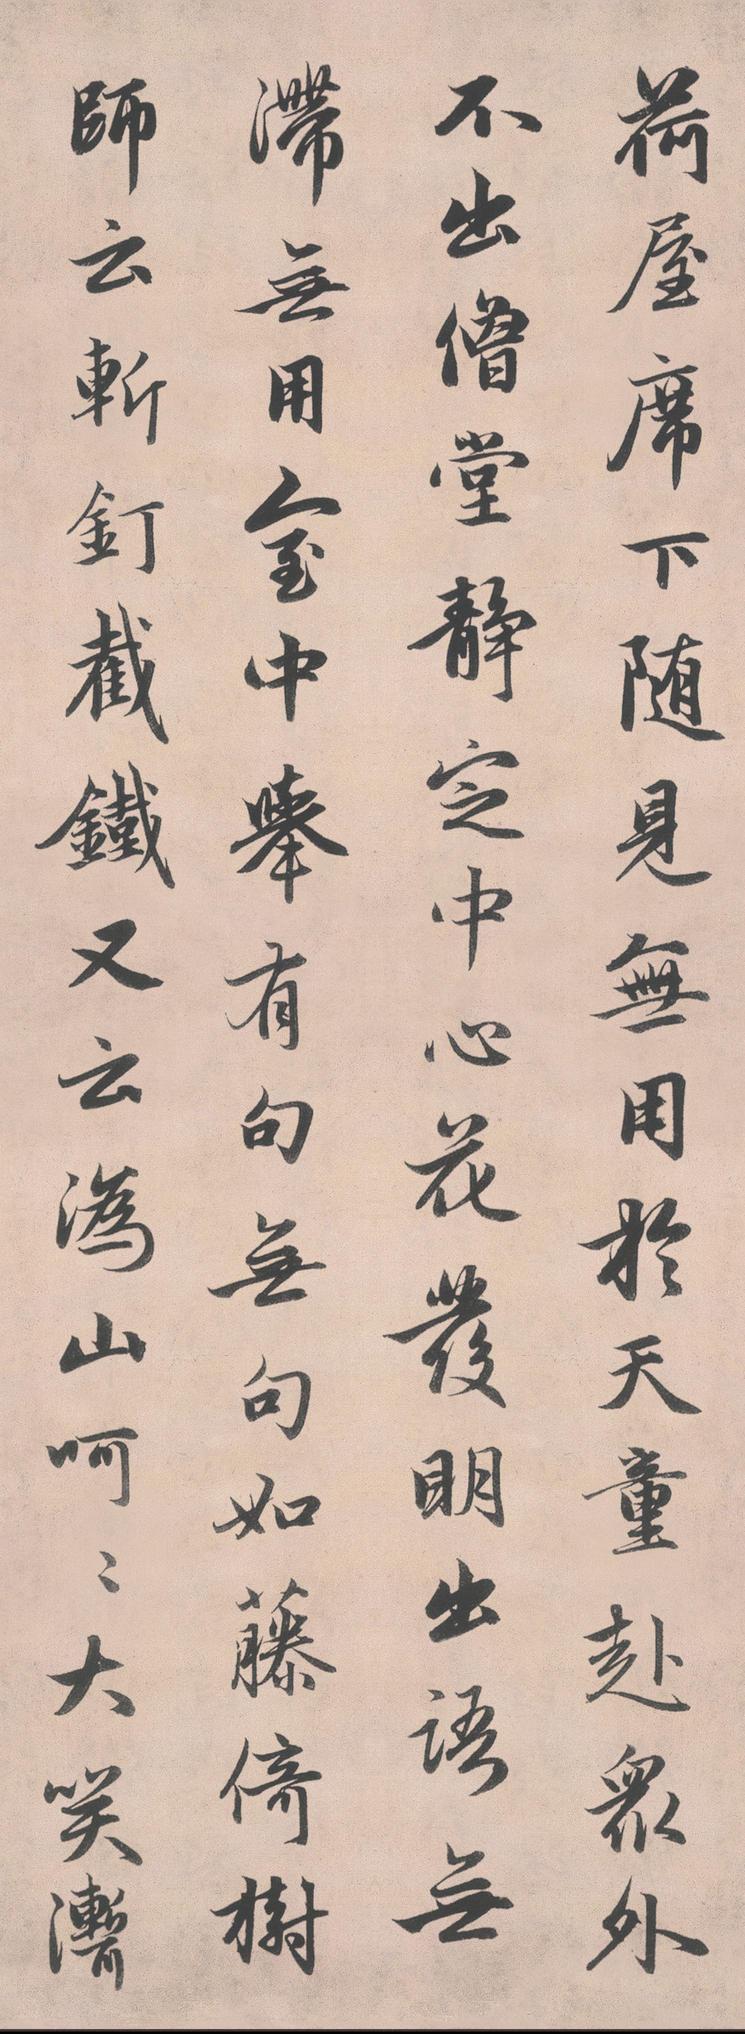 荷屋席下随見無用於天童赴眾外
不出僧堂靜定中心花發明出語無
滯無用室中舉有句無句如藤倚樹
師云斬釘截鐵又云溈山呵〻大笑漕